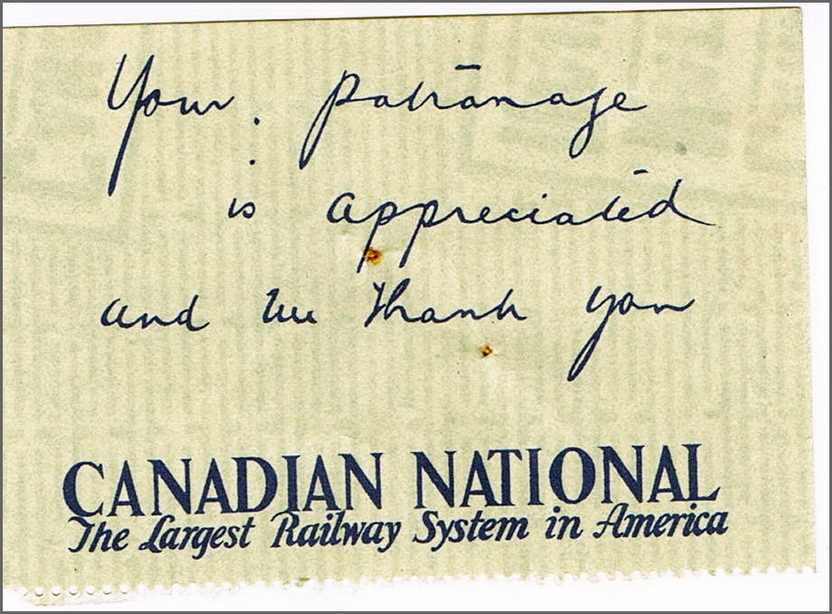 Your patronage
is appreciated
and we thank you
CANADIAN NATIONAL
The Largest Railway System in America